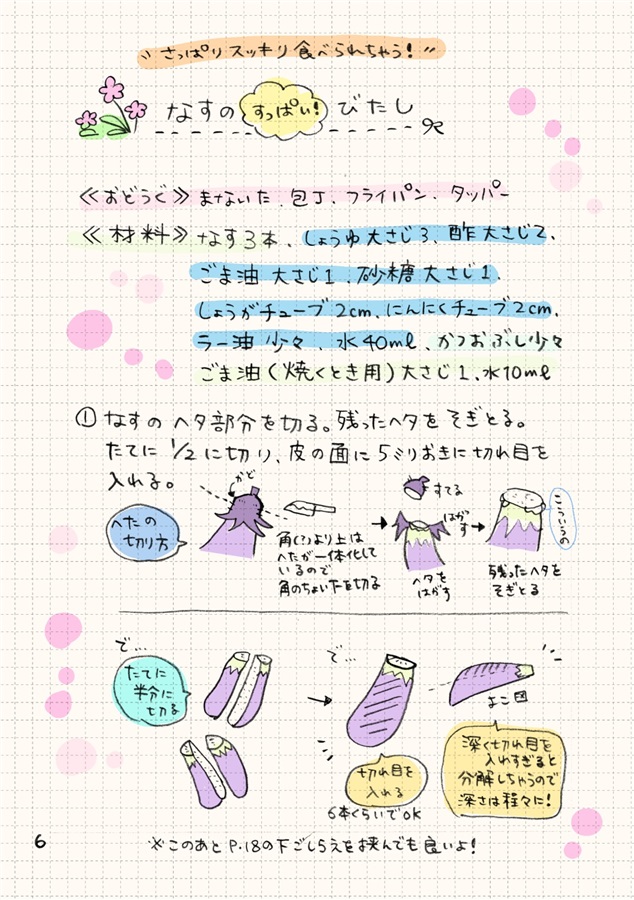 さっぱりスッキリ食べられちゃう!
なすの すっぱい! びたし
≪おどうぐ≫ まないた、包丁、フライパン、タッパー
≪材料≫ なす3本、しょうゆ大さじ3、酢大さじ2、
ごま油 大さじ1、砂糖 大さじ1、
しょうがチューブ2cm、にんにくチューブ2cm、
ラー油 少々、水40ml、かつおぶし少々
ごま油(焼くとき用)大さじ1、水10ml
① なすのヘタ部分を切る。残ったヘタをそぎとる。
たてに1/2に切り、皮の面に5ミリおきに切れ目を
入れる。
へたの
切り方
かど
角(?)より上は
へたが一体化して
いるので
角のちょい下を切る
すてる
はがす
ヘタを
はがす
こういうの
残ったヘタを
そぎとる
で…
たてに
半分に
切る
で…
切れ目を
入れる
6本くらいでOK
よこ図
深く切れ目を
入れすぎると
分解しちゃうので
深さは程々に!
※このあとP.18の下ごしらえを挟んでも良いよ!
6